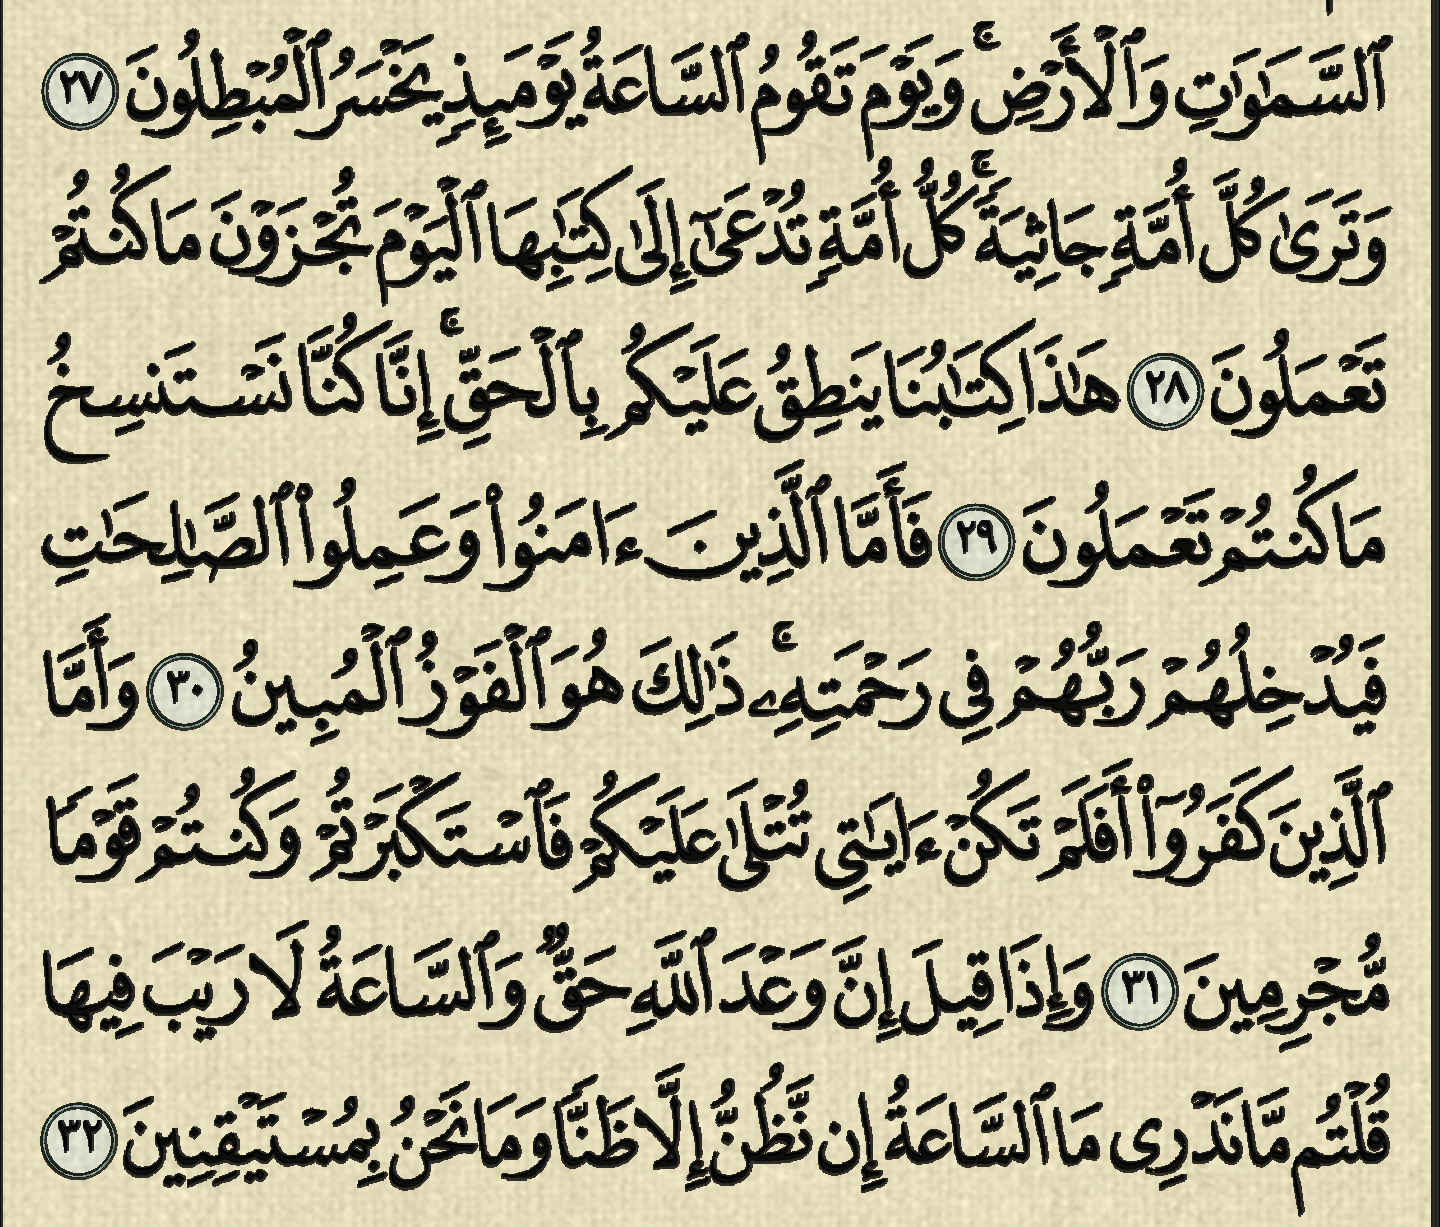 ٱلسَّمَٰوَٰتِ وَٱلْأَرْضِ ۚ وَيَوْمَ تَقُومُ ٱلسَّاعَةُ يَوْمَئِذٍ يَخْسَرُ ٱلْمُبْطِلُونَ ٢٧
وَتَرَىٰ كُلَّ أُمَّةٍ جَاثِيَةً ۚ كُلُّ أُمَّةٍ تُدْعَىٰٓ إِلَىٰ كِتَٰبِهَا ٱلْيَوْمَ تُجْزَوْنَ مَا كُنتُمْ
تَعْمَلُونَ ٢٨ هَٰذَا كِتَٰبُنَا يَنطِقُ عَلَيْكُم بِٱلْحَقِّ ۚ إِنَّا كُنَّا نَسْتَنسِخُ
مَا كُنتُمْ تَعْمَلُونَ ٢٩ فَأَمَّا ٱلَّذِينَ ءَامَنُوا۟ وَعَمِلُوا۟ ٱلصَّٰلِحَٰتِ
فَيُدْخِلُهُمْ رَبُّهُمْ فِى رَحْمَتِهِۦ ۚ ذَٰلِكَ هُوَ ٱلْفَوْزُ ٱلْمُبِينُ ٣٠ وَأَمَّا
ٱلَّذِينَ كَفَرُوٓا۟ أَفَلَمْ تَكُنْ ءَايَٰتِى تُتْلَىٰ عَلَيْكُمْ فَٱسْتَكْبَرْتُمْ وَكُنتُمْ قَوْمًا
مُّجْرِمِينَ ٣١ وَإِذَا قِيلَ إِنَّ وَعْدَ ٱللَّهِ حَقٌّ وَٱلسَّاعَةُ لَا رَيْبَ فِيهَا
قُلْتُم مَّا نَدْرِى مَا ٱلسَّاعَةُ إِن نَّظُنُّ إِلَّا ظَنًّا وَمَا نَحْنُ بِمُسْتَيْقِنِينَ ٣٢